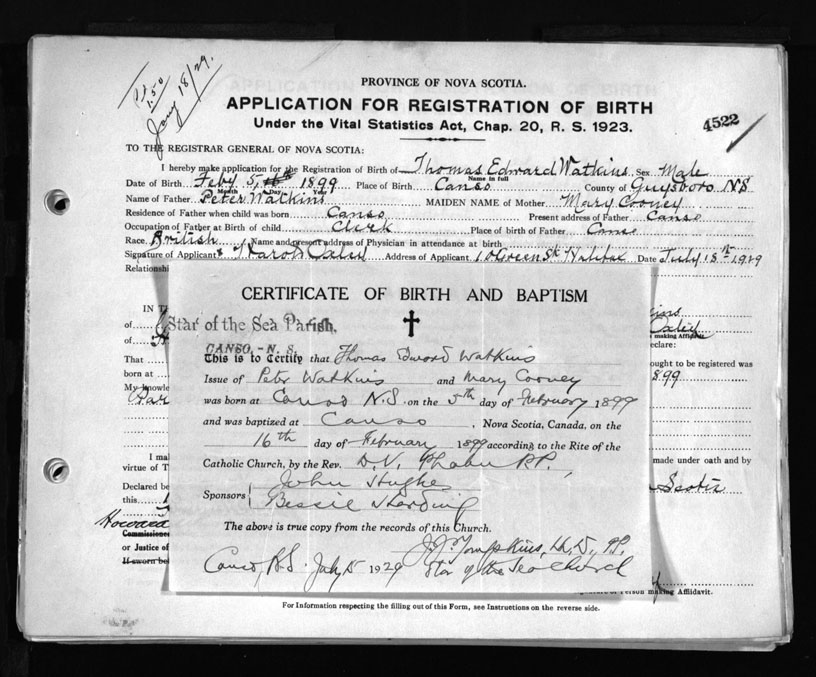 Pd
1.50
Jany 18/29.
PROVINCE OF NOVA SCOTIA.
APPLICATION FOR REGISTRATION OF BIRTH
Under the Vital Statistics Act, Chap. 20, R. S. 1923.
4522
TO THE REGISTRAR GENERAL OF NOVA SCOTIA:
I hereby make application for the Registration of Birth of Thomas Edward Watkins Sex Male
Name in full
Date of Birth Feby 5, 1899 Place of Birth Canso County of Guysboro NS
Month Day Year
Name of Father Peter Watkins MAIDEN NAME of Mother Mary Cooney
Residence of Father when child was born Canso Present address of Father Canso
Occupation of Father at Birth of child Clerk Place of birth of Father Canso
Race British Name and present address of Physician in attendance at birth
Signature of Applicant Address of Applicant 10 Green St Halifax Date July 18th 1929
Relationsh
IN T
of
of
making Affidavit
eclare:
That
ought to be registered was
born at
899
My knowle
I mal
made under oath and by
virtue of T
Declared be
Scotia
this
Howard
Commissione
or Justice of
If sworn be
CERTIFICATE OF BIRTH AND BAPTISM
Star of the Sea Parish,
CANSO, - N. S.
This is to Certify that Thomas Edward Watkins
Issue of Peter Watkins and Mary Cooney
was born at Canso N.S. on the 5th day of February 1899
and was baptized at Canso, Nova Scotia, Canada, on the
16th day of February 1899 according to the Rite of the
Catholic Church, by the Rev. D. V. P.P.,
John Hughes
Sponsors
Bessie
The above is true copy from the records of this Church.
J. J. Tompkins, P.P.
Canso, N.S. July 5 1929 Star of the Sea Church
Signature of Person making Affidavit.
For Information respecting the filling out of this Form, see Instructions on the reverse side.